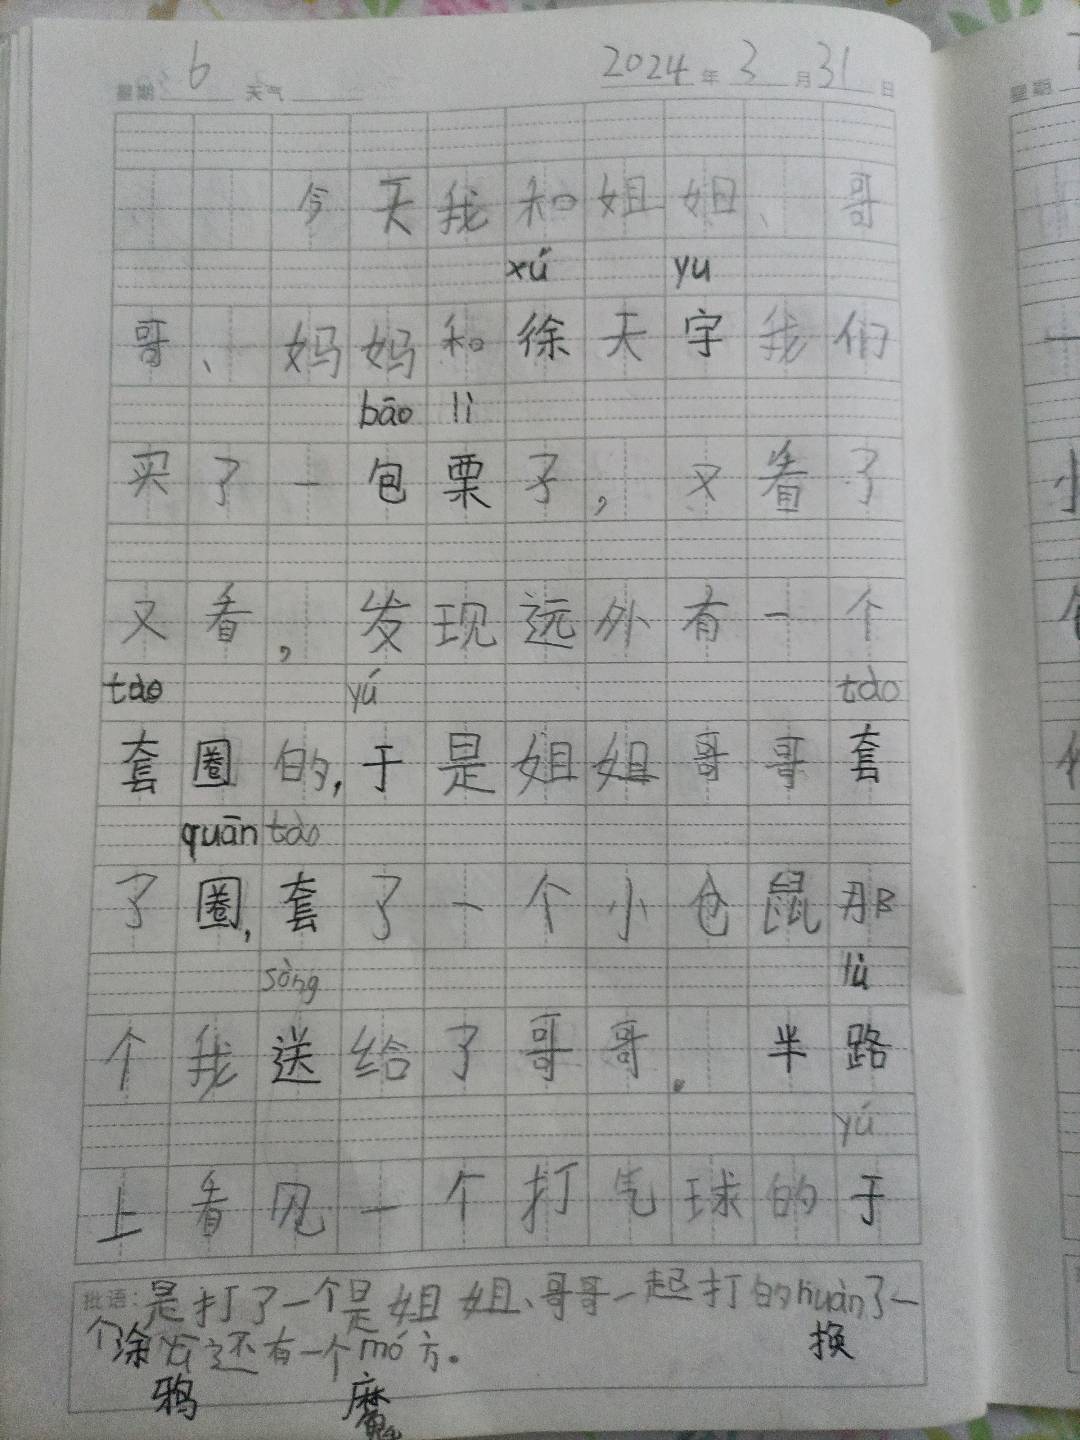 星期 6 天气 2024年 3月 31日
今天我和姐姐、哥
xú yu
哥、妈妈和徐天宇我们
bāo lì
买了一包栗子，又看了
又看，发现远外有一个
tào yú tào
套圈的，于是姐姐哥哥套
quān tào
了圈，套了一个小仓鼠那
sòng lù
个我送给了哥哥。半路
yú
上看见一个打气球的于
批语：是打了一个是姐姐、哥哥一起打的huàn了一
换
个涂yā还有一个mó方。
鸦 魔
星期